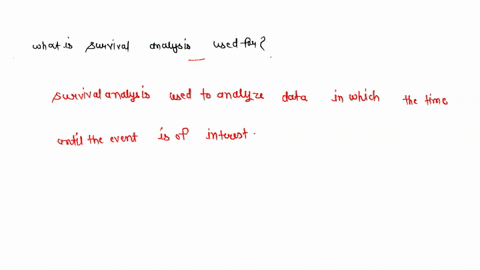 what is survival analysis used for?
survival analysis used to analyze data in which the time
until the event is of interest.